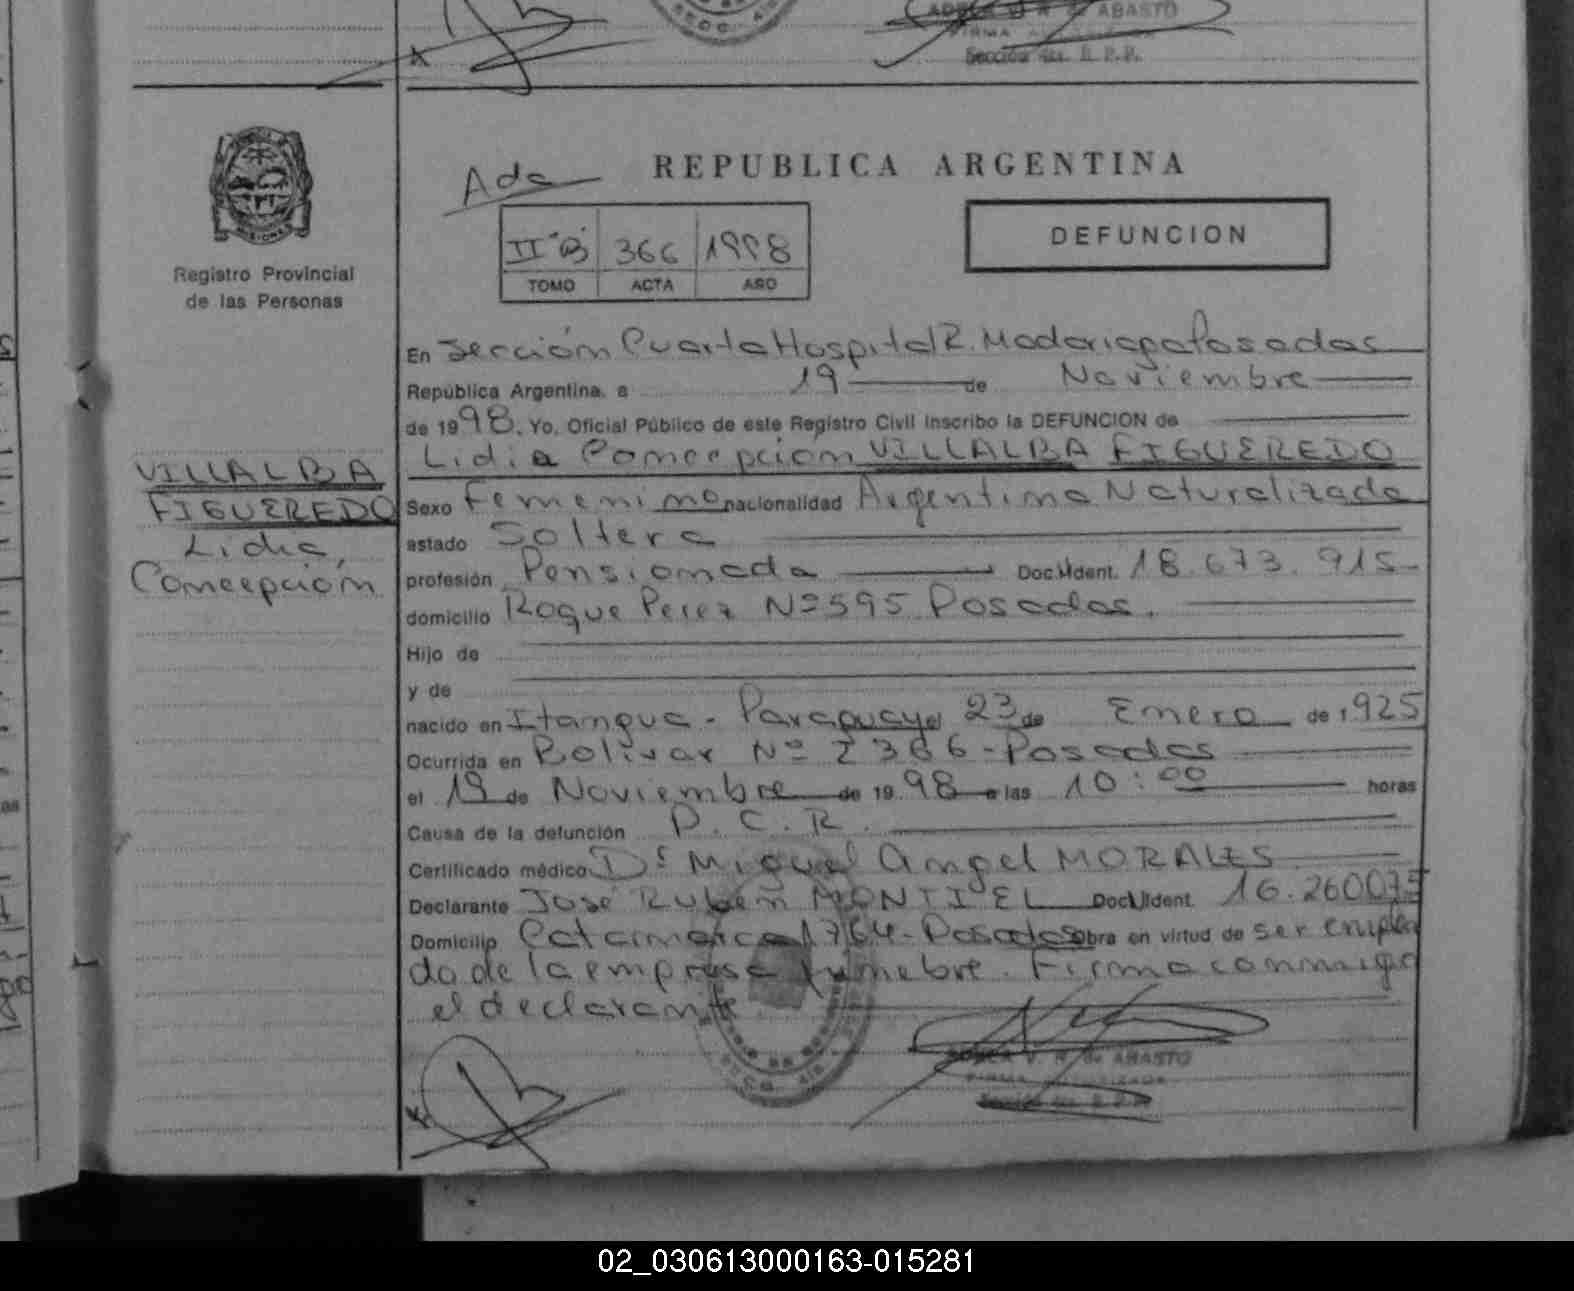 ABASTO
Sección 4ta. R.P.P.
Registro Provincial
de las Personas
VILLALBA
FIGUEREDO
Lidia,
Concepción
REPUBLICA ARGENTINA
II "B" 366 1998
TOMO ACTA AÑO
DEFUNCION
En Sección Cuarta Hospital R. Madariaga Posadas
República Argentina, a 19 de Noviembre
de 1998. Yo, Oficial Público de este Registro Civil inscribo la DEFUNCION de
Lidia Concepción VILLALBA FIGUEREDO
Sexo Femenino nacionalidad Argentina Naturalizada
estado Soltera
profesión Pensionada Doc. Ident. 18.673.915
domicilio Roque Perez Nº 595 Posadas.
Hijo de
y de
nacido en Itangua - Paraguay el 23 de Enero de 1925
Ocurrida en Bolivar Nº 2366 - Posadas
el 19 de Noviembre de 1998 a las 10:00 horas
Causa de la defunción P.C.R.
Certificado médico Dr Miguel Angel MORALES
Declarante José Rubén MONTIEL Doc. Ident. 16.260075
Domicilio Catamarca 1764 - Posadas obra en virtud de ser emplea
do de la empresa funebre. Firma conmigo
el declarante
V. R. de ABASTO
02_030613000163-015281